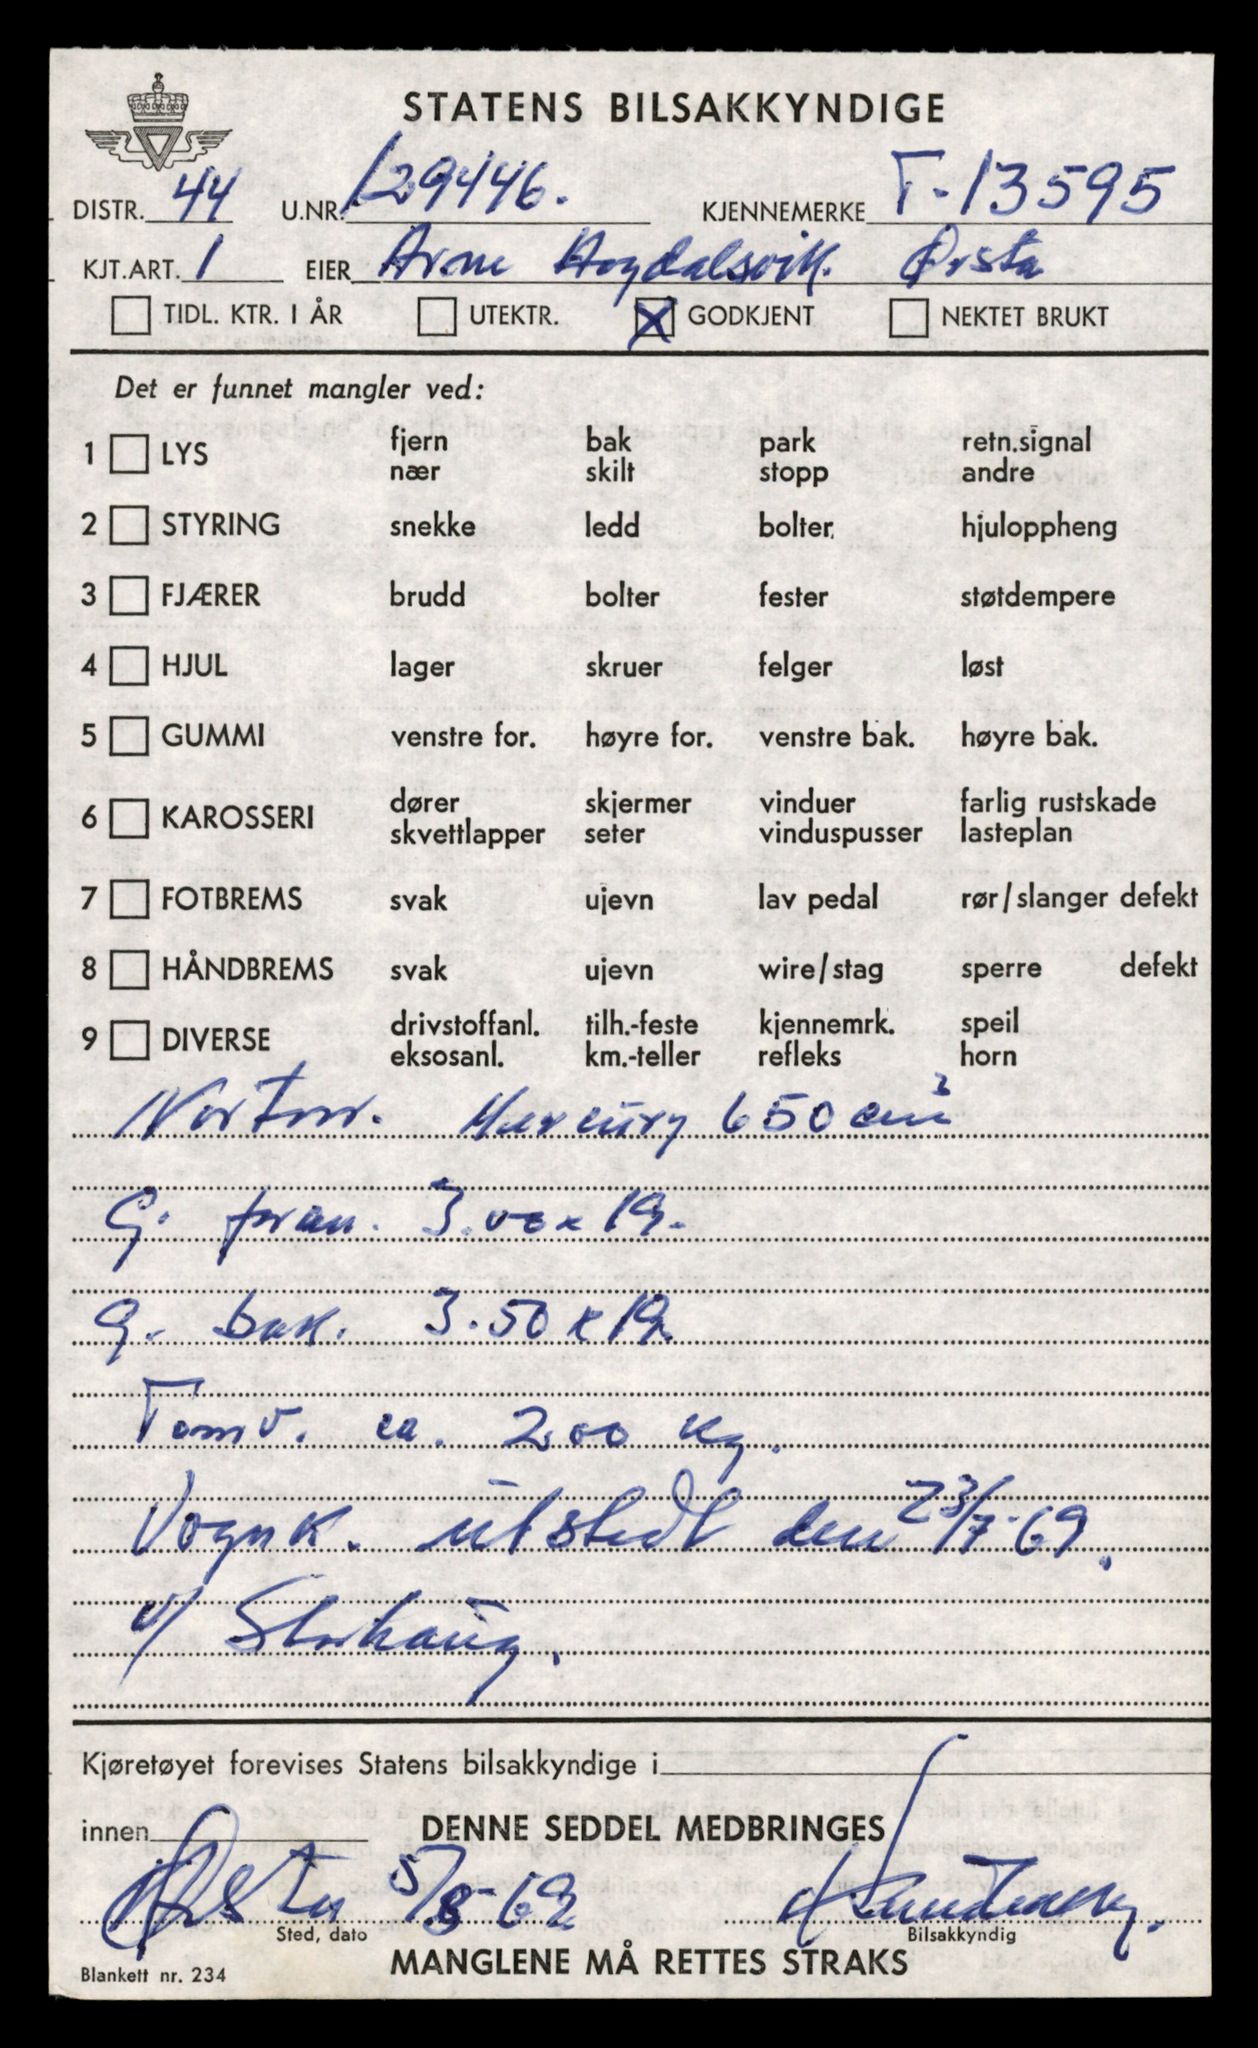 STATENS BILSAKKYNDIGE
DISTR. 44 U.NR. 129446. KJENNEMERKE T-13595
KJT.ART. 1 EIER Arne Hogdalsvik. Ørsta
TIDL. KTR. I ÅR UTEKTR. X GODKJENT NEKTET BRUKT
Det er funnet mangler ved:
1 LYS fjern bak park retn.signal
nær skilt stopp andre
2 STYRING snekke ledd bolter hjuloppheng
3 FJÆRER brudd bolter fester støtdempere
4 HJUL lager skruer felger løst
5 GUMMI venstre for. høyre for. venstre bak. høyre bak.
6 KAROSSERI dører skjermer vinduer farlig rustskade
skvettlapper seter vinduspusser lasteplan
7 FOTBREMS svak ujevn lav pedal rør/slanger defekt
8 HÅNDBREMS svak ujevn wire/stag sperre defekt
9 DIVERSE drivstoffanl. tilh.-feste kjennemrk. speil
eksosanl. km.-teller refleks horn
Norton. Mercury 650 cm³
G. foran. 3.00 x 19.
G. bak. 3.50 x 19.
Tomv. ca. 200 kg.
Vognk. utstedt den 23/7-69.
v/ Storhaug.
Kjøretøyet forevises Statens bilsakkyndige i
innen DENNE SEDDEL MEDBRINGES
Ørsta 5/8-69
Sted, dato Bilsakkyndig
MANGLENE MÅ RETTES STRAKS
Blankett nr. 234